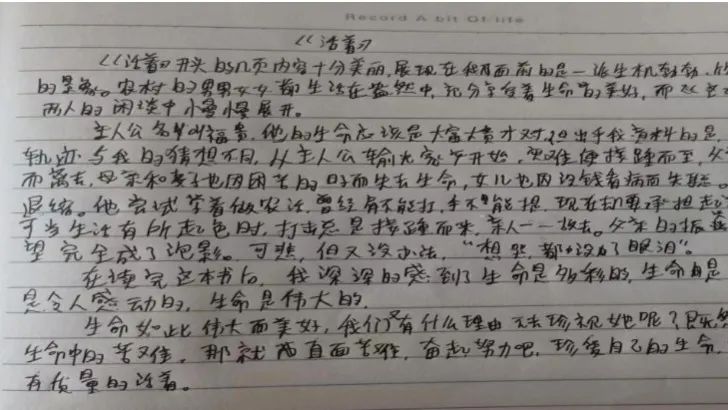 Record A bit Of life
《活着》
《活着》开头的几页内容十分美丽,展现在我面前的是一派生机勃勃、
的景象。农村的男男女女都生活在盎然中,充分享受着生命的美好,而
两人的闲谈中慢慢展开。
主人公名叫福贵,他的生命应该是大富大贵才对,但出乎我意料的是
轨迹与我的猜想不同,从主人公输光家产开始,灾难便接踵而至,父
而离去,母亲和妻子也因困苦的日子而失去生命,女儿也因没钱看病而失聪
退缩。他尝试学着做农活,曾经肩不能扛,手不能提,现在却要承担起
于当生活有所起色时,打击总是接踵而来,亲人一一故去。父亲的振
望完全成了泡影。可悲,但又没办法,“想哭,都没了眼泪”。
在读完这本书后,我深深的感到了生命是多彩的,生命
是令人感动的,生命是伟大的。
生命如此伟大而美好,我们又有什么理由不去珍视她呢?既然
生命中的苦难,那就要直面苦难,奋起努力吧,珍爱自己的生命
有质量的活着。